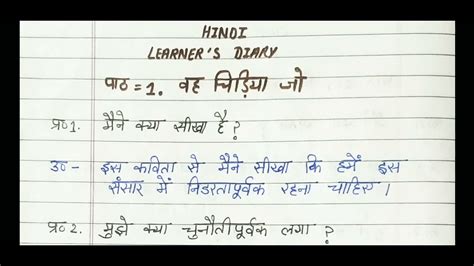 HINDI
LEARNER'S DIARY
पाठ = 1. वह चिड़िया जो
प्र०1. मैने क्या सीखा है ?
उ०- इस कविता से मैने सीखा कि हमें इस
संसार में निडरतापूर्वक रहना चाहिए ।
प्र० 2. मुझे क्या चुनौतीपूर्वक लगा ?